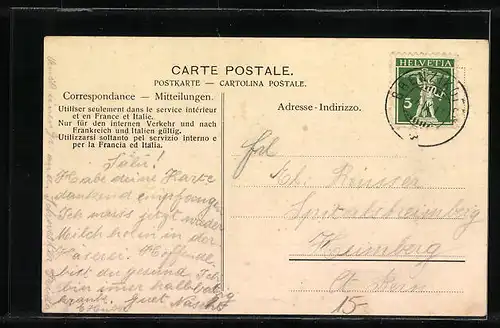 CARTE POSTALE.
POSTKARTE — CARTOLINA POSTALE.
Correspondance — Mitteilungen.
Utiliser seulement dans le service intérieur
et en France et Italie.
Nur für den internen Verkehr und nach
Frankreich und Italien gültig.
Utilizzarsi soltanto pel servizio interno e
per la Francia ed Italia.
Adresse - Indirizzo.
HELVETIA
5
Salü!
Habe deine Karte
dankend empfangen
Ich muss jetzt wieder
Milch holen in der
Käserei. Hoffentl.
bist du gesund. Ich
bin imer halb
krank. guet Nacht
Frl.
Reusser
Heimberg
Ct. Bern
15-